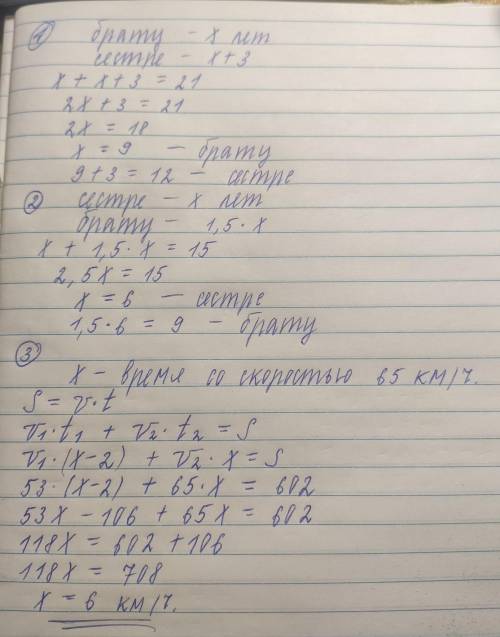 1 брату - х лет
сестре - х+3
х + х + 3 = 21
2х + 3 = 21
2х = 18
х = 9 - брату
9 + 3 = 12 - сестре
2 сестре - х лет
брату - 1,5 · х
х + 1,5 · х = 15
2,5х = 15
х = 6 - сестре
1,5 · 6 = 9 - брату
3
х - время со скоростью 65 км/ч.
S = v · t
v₁ · t₁ + v₂ · t₂ = S
v₁ · (х-2) + v₂ · х = S
53 · (х-2) + 65 · х = 602
53х - 106 + 65х = 602
118х = 602 + 106
118х = 708
х = 6 км/ч.